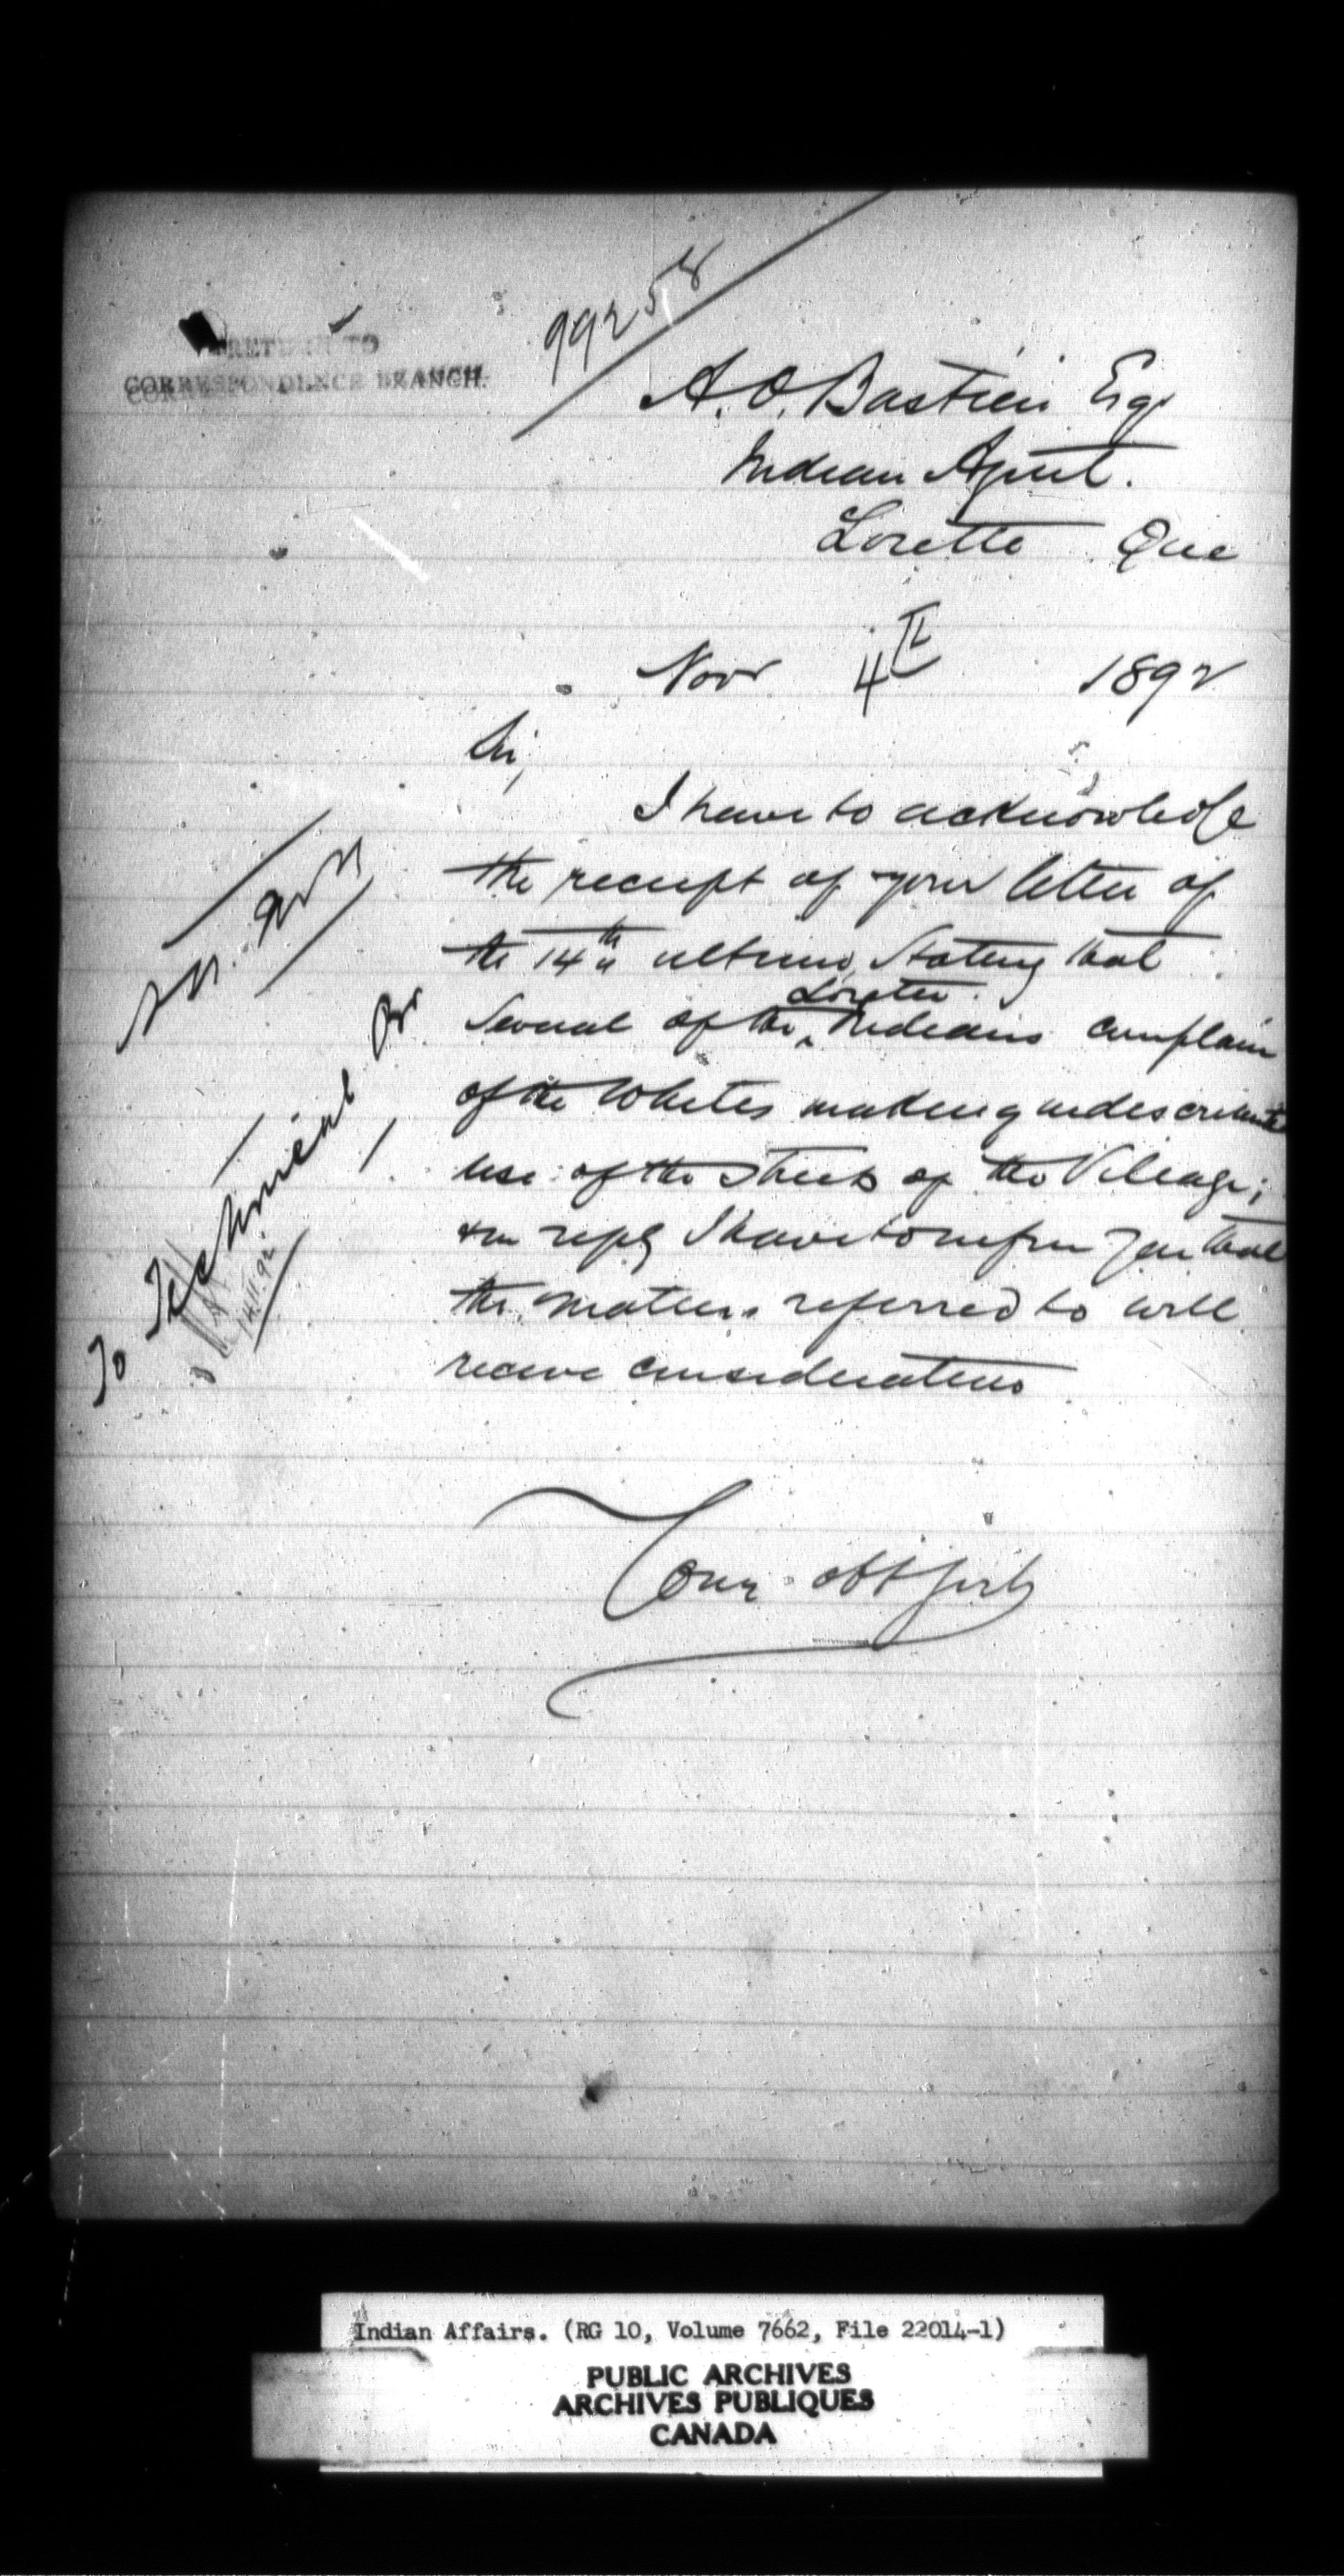 RETURN TO
CORRESPONDENCE BRANCH.
99258
A. O. Bastien Esqr
Indian Agent.
Lorette Que
Novr 4th 1892
Sir,
I have to acknowledge
the receipt of your letter of
the 14th ultimo, stating that
Several of the Lorette Indians complain
of the Whites making indiscriminate
use of the Streets of the Village;
& in reply I have to inform you that
the matters referred to will
receive consideration
Your obt servt
To Technical Br
14.11.92
Indian Affairs. (RG 10, Volume 7662, File 22014-1)
PUBLIC ARCHIVES
ARCHIVES PUBLIQUES
CANADA